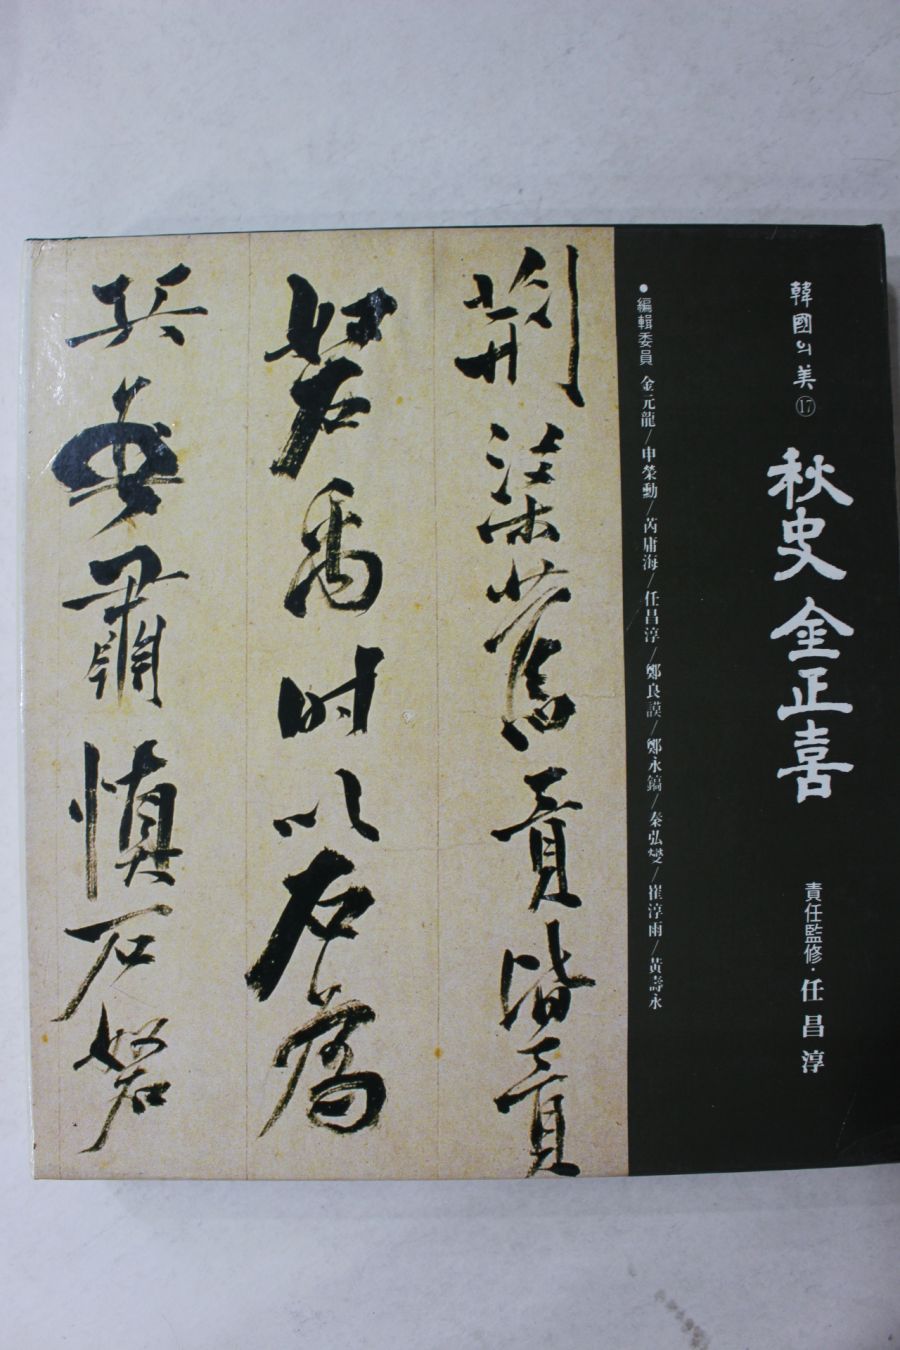 韓國의 美 ⑰
秋史 金正喜
責任監修・任昌淳
●編輯委員 金元龍/申榮勳/芮庸海/任昌淳/鄭良謨/鄭永鎬/秦弘燮/崔淳雨/黃壽永
荊梁舊貢皆貢
砮石禹時以石爲
兵 肅慎石砮